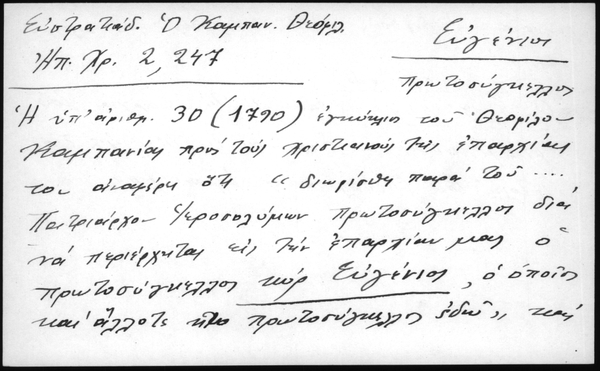 Εὐστρατιάδ. Ὁ Καμπαν. Θεόφιλ.
Ἠπ. Χρ. 2, 247
Εὐγένιος
πρωτοσύγκελλος
Ἡ ὑπ' ἀριθμ. 30 (1790) ἐγκύκλιος τοῦ Θεοφίλου
Καμπανίας πρὸς τοὺς χριστιανοὺς τῆς ἐπαρχίας
του ἀναφέρει ὅτι "διωρίσθη παρὰ τοῦ ....
Πατριάρχου Ἱεροσολύμων πρωτοσύγκελλος διὰ
νά περιέρχεται εἰς τὴν ἐπαρχίαν μας ὁ
πρωτοσύγκελλος κύρ Εὐγένιος, ὁ ὁποῖος
καί ἄλλοτε ἦτο πρωτοσύγκελλος ἐδῶ", καί